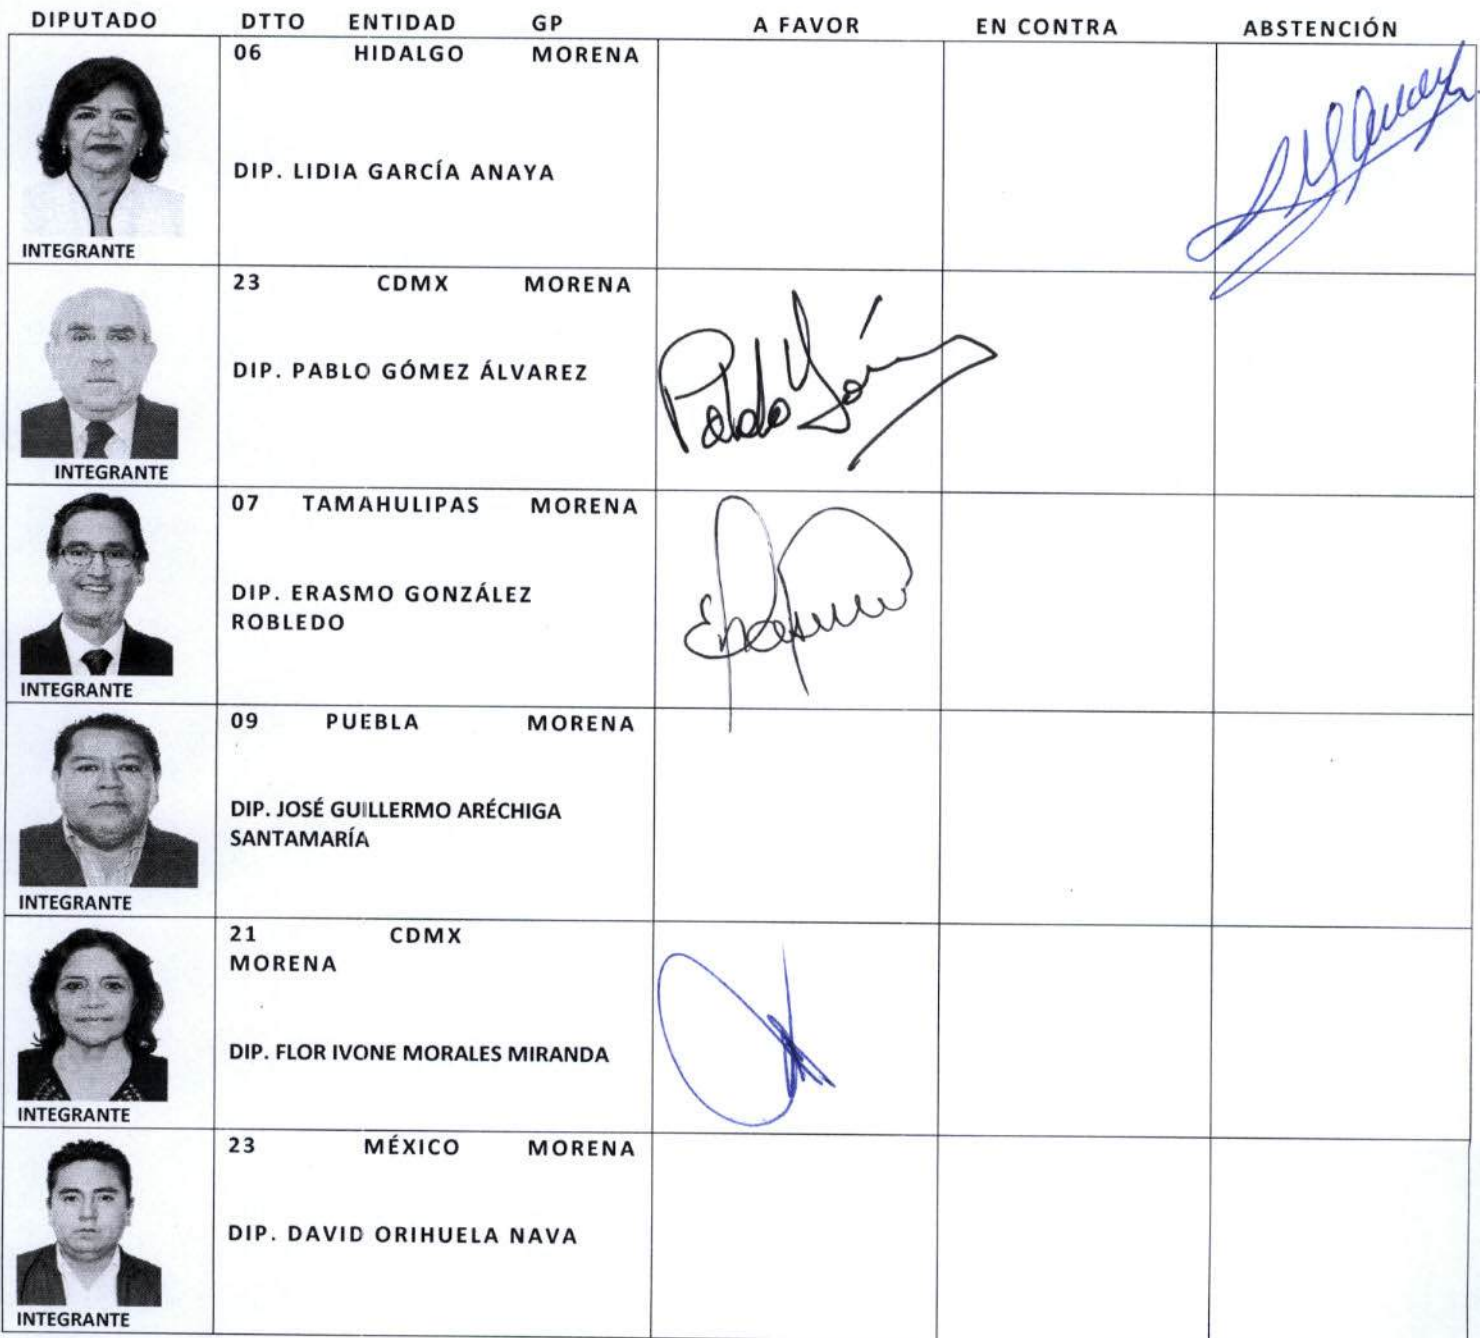 DIPUTADO DTTO ENTIDAD GP A FAVOR EN CONTRA ABSTENCIÓN
06 HIDALGO MORENA
DIP. LIDIA GARCÍA ANAYA
INTEGRANTE
23 CDMX MORENA
DIP. PABLO GÓMEZ ÁLVAREZ
Pablo Góm
INTEGRANTE
07 TAMAHULIPAS MORENA
DIP. ERASMO GONZÁLEZ
ROBLEDO
Erasmo
INTEGRANTE
09 PUEBLA MORENA
DIP. JOSÉ GUILLERMO ARÉCHIGA
SANTAMARÍA
INTEGRANTE
21 CDMX
MORENA
DIP. FLOR IVONE MORALES MIRANDA
INTEGRANTE
23 MÉXICO MORENA
DIP. DAVID ORIHUELA NAVA
INTEGRANTE